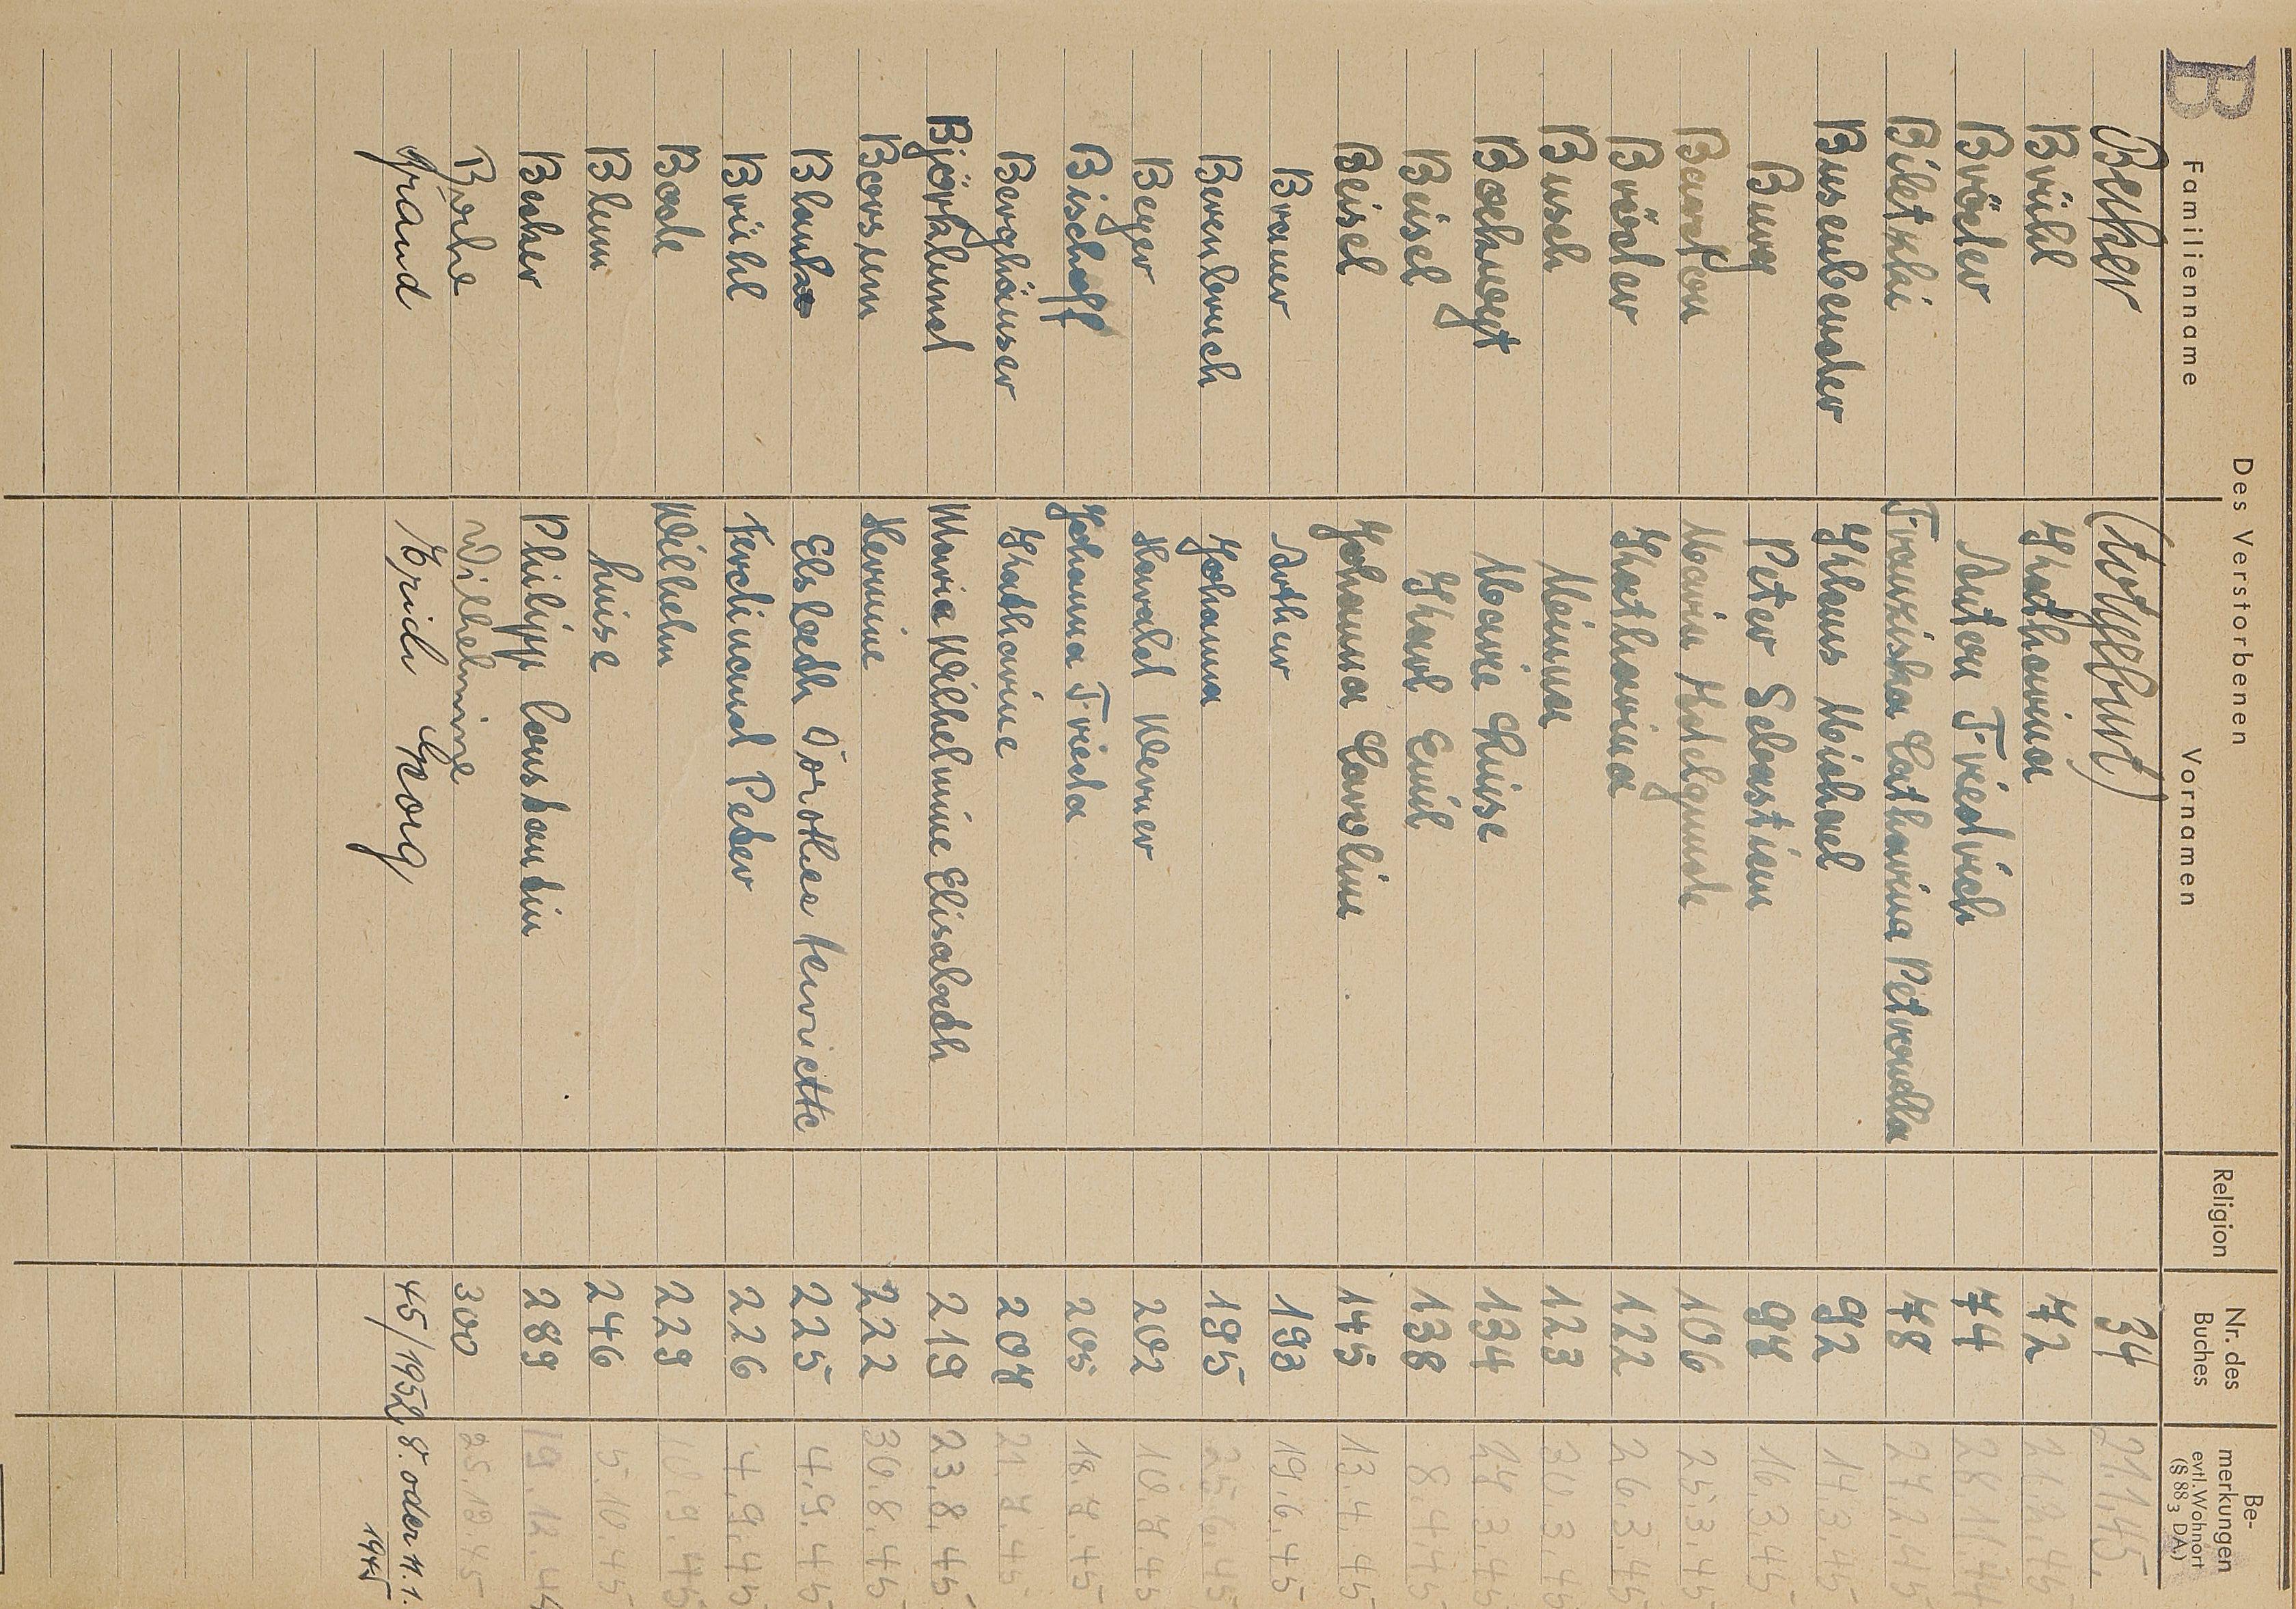 B
Des Verstorbenen
Familienname Vornamen Religion Nr. des Buches Bemerkungen evtl. Wohnort (§ 88 3 DA.)
Becker (totgeburt) 34 21.1.45.
Brühl Katharina 72 21.2.45
Bröder Anton Friedrich 74 28.11.44
Biletzki Franziska Catharina Petronella 78 27.2.45
Busenbender Klaus Michael 92 14.3.45
Burg Peter Sebastian 94 16.3.45
Barton Maria Adelgunde 106 25.3.45
Bröder Katharina 122 26.3.45
Busch Minna 123 30.3.45
Marie Luise 134 24.3.45
Beisel Karl Emil 138 8.4.45
Beisel Johanna Caroline 145 13.4.45
Brauer Arthur 193 19.6.45
Berenbruch Johanna 195 25.6.45
Beyer Harald Werner 202 10.7.45
Bischoff Johanna Frieda 205 18.7.45
Berghäuser Katharine 207 21.7.45
Björklund Maria Wilhelmine Elisabeth 219 23.8.45
Borsum Hermine 222 30.8.45
Elsbeth Dorothea Henriette 225 4.9.45
Brühl Ferdinand Peter 226 4.9.45
Bode Wilhelm 229 10.9.45
Blum Luise 246 5.10.45
Becher Philipp Constantin 289 19.12.44
Wilhelmine 300 25.12.45
Braud Erich Georg 45/1952 8. oder 11.1.
1945